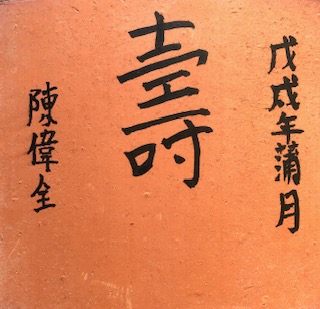 戊戌年蒲月
壽
陳偉全